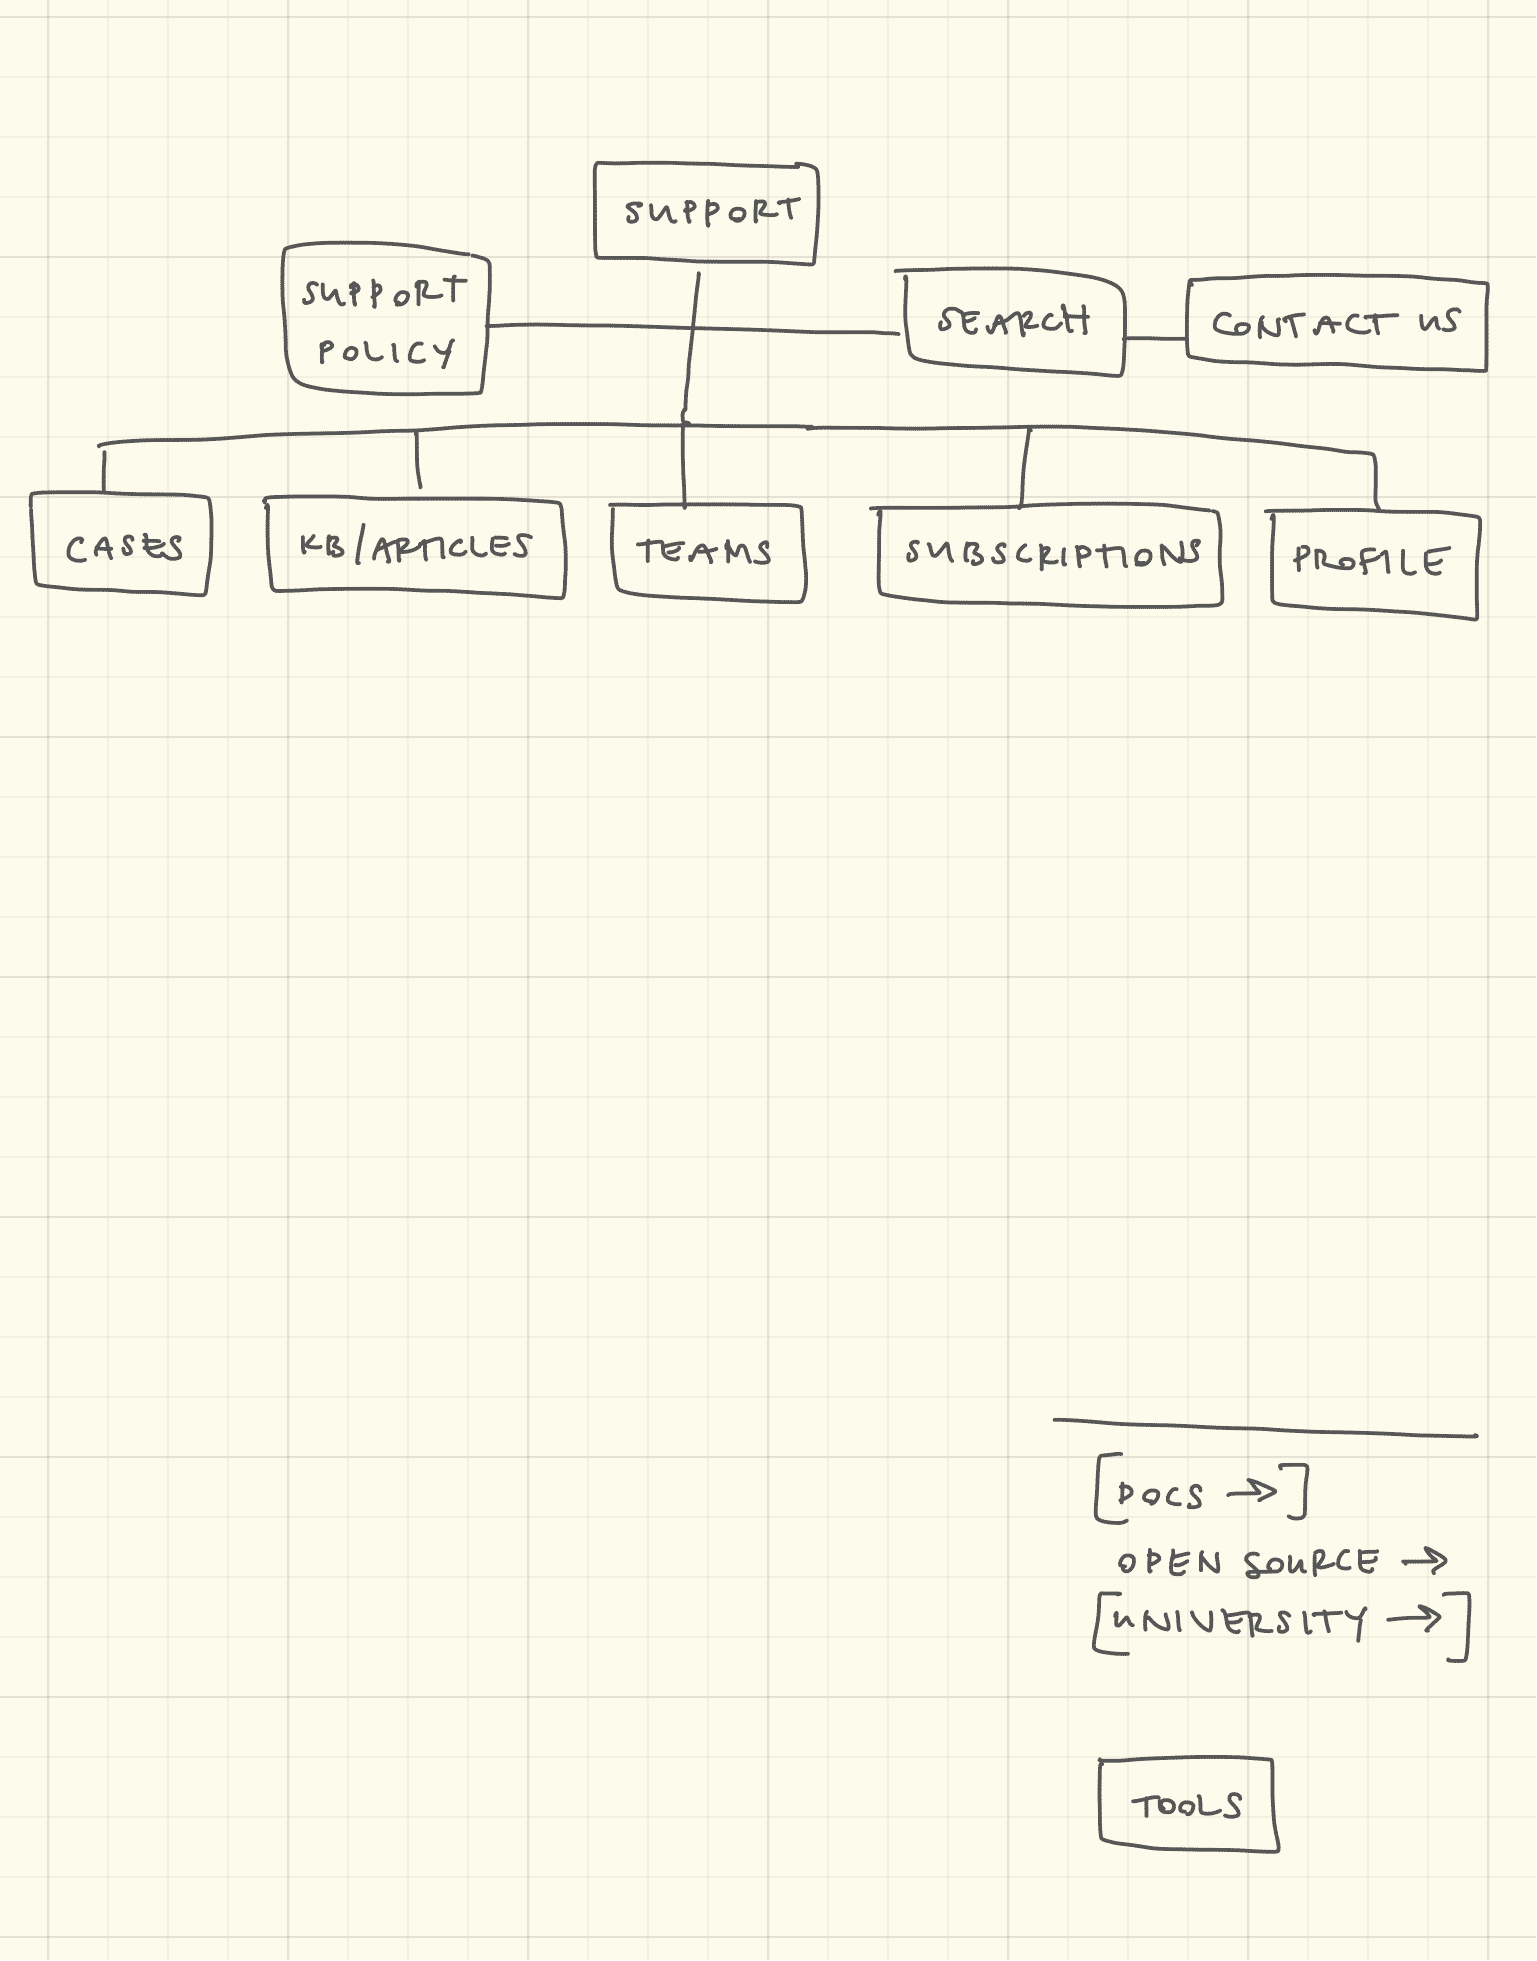 SUPPORT
SUPPORT
POLICY
SEARCH
CONTACT US
CASES
KB/ARTICLES
TEAMS
SUBSCRIPTIONS
PROFILE
[DOCS →]
OPEN SOURCE →
[UNIVERSITY →]
TOOLS